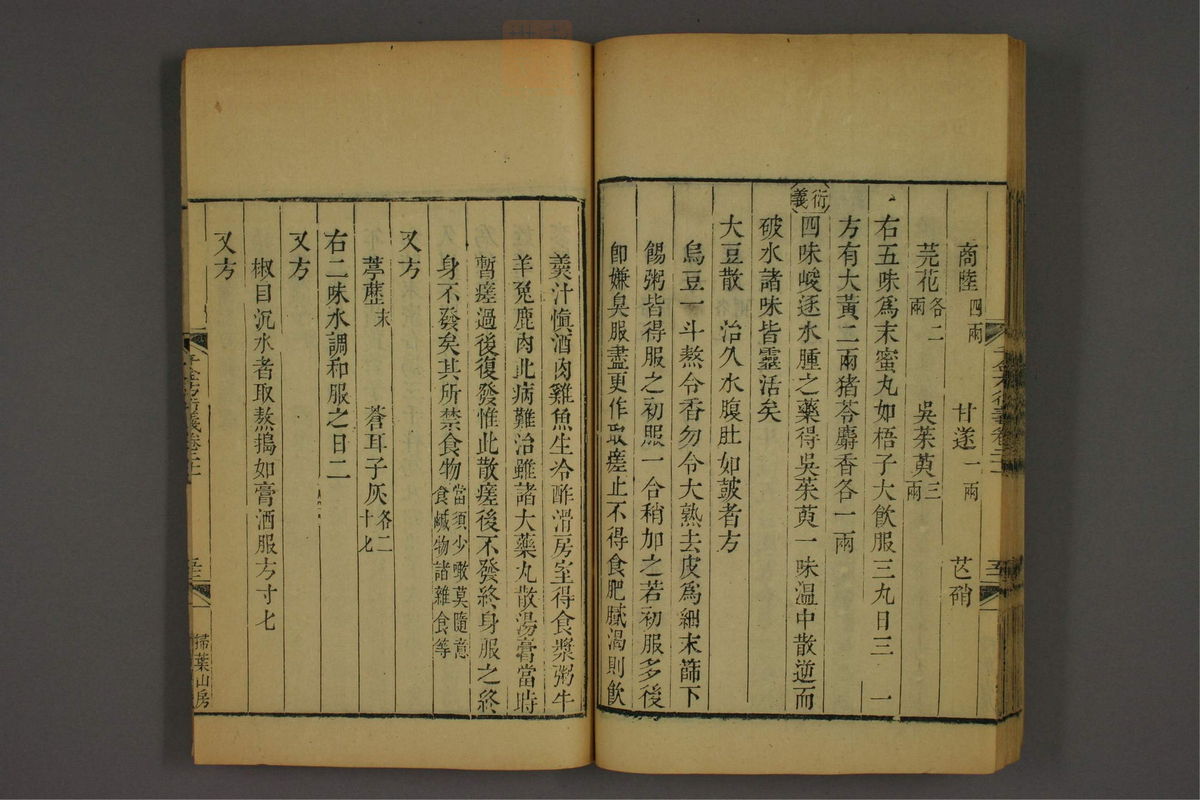 商陸四兩 甘遂一兩 芒硝
芫花各二兩 吳茱萸三兩
右五味為末蜜丸如梧子大飲服三丸日三 一
方有大黃二兩猪苓麝香各一兩
衍義 四味峻逐水腫之藥得吳茱萸一味溫中散逆而
破水諸味皆靈活矣
大豆散 治久水腹肚如皷者方
烏豆一斗熬令香勿令大熟去皮為細末篩下
餳粥皆得服之初服一合稍加之若初服多後
卽嫌臭服盡更作取瘥止不得食肥膩渴則飲
羹汁愼酒肉雞魚生冷酢滑房室得食漿粥牛
羊兔鹿肉此病難治雖諸大藥丸散湯膏當時
暫瘥過後復發惟此散瘥後不發終身服之終
身不發矣其所禁食物當須少噉莫隨意食鹹物諸雜食等
又方
葶藶末 蒼耳子灰各二十七
右二味水調和服之日二
又方
椒目沉水者取熬搗如膏酒服方寸七
又方
千金方衍義卷二十一
五三
千金方衍義卷二十一
掃葉山房